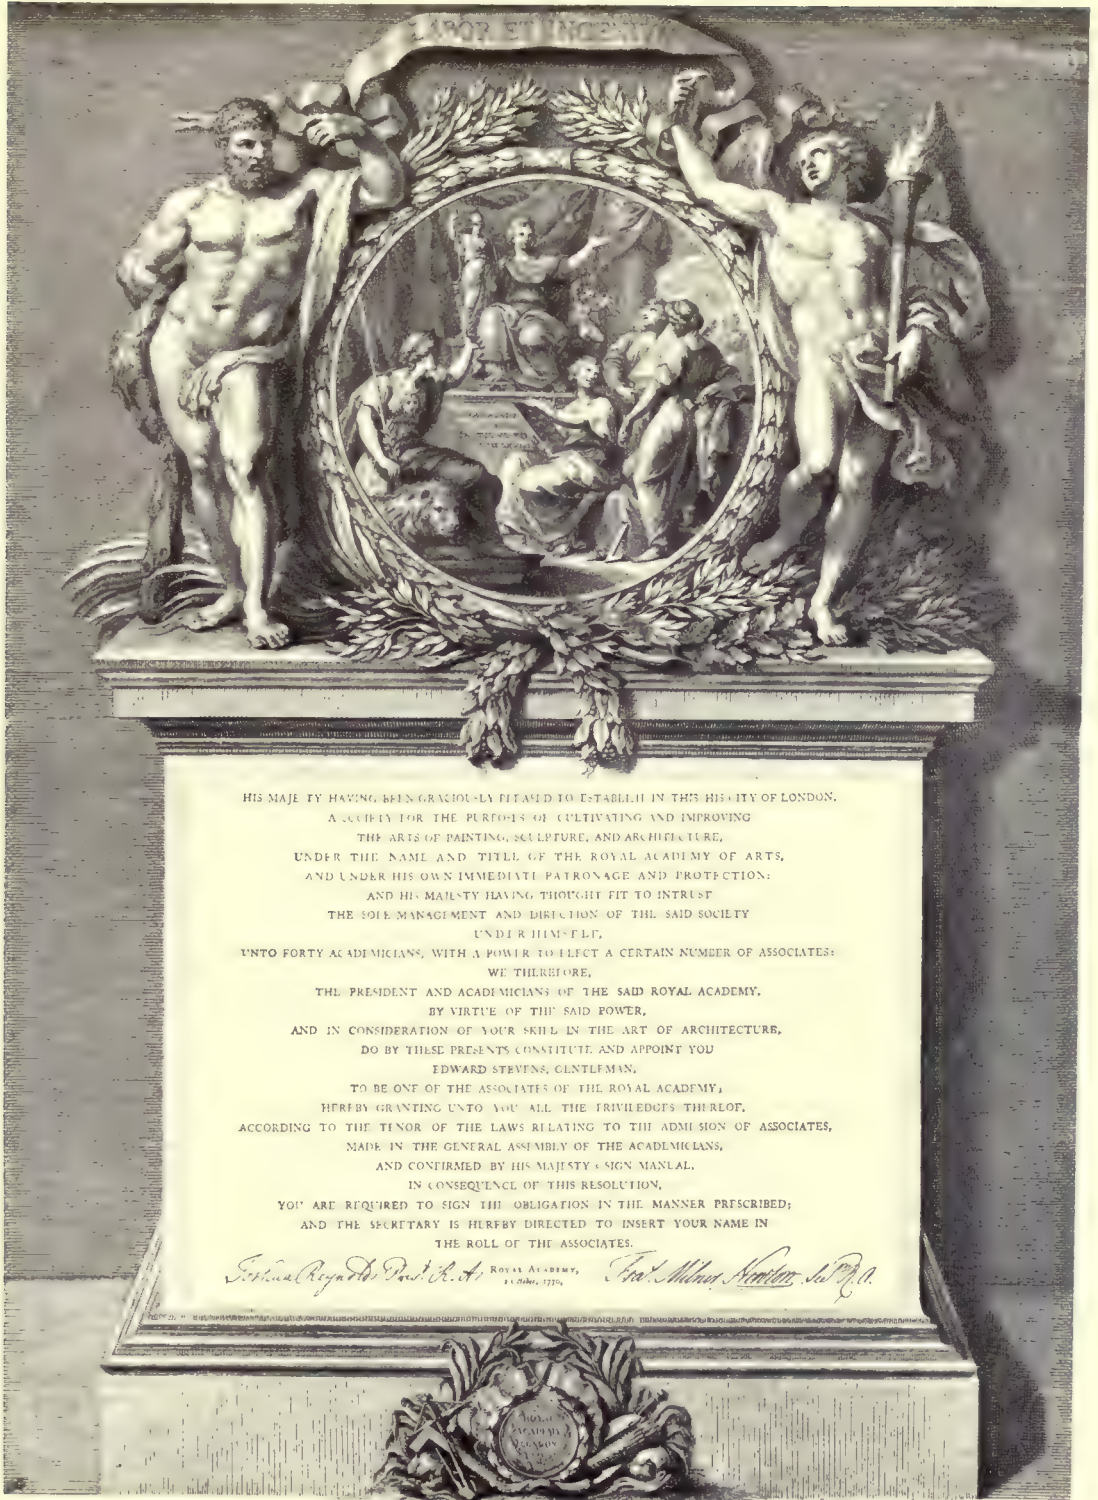 LABOR ET INGENIUM
HIS MAJESTY HAVING BEEN GRACIOUSLY PLEASED TO ESTABLISH IN THIS HIS CITY OF LONDON,
A SOCIETY FOR THE PURPOSES OF CULTIVATING AND IMPROVING
THE ARTS OF PAINTING, SCULPTURE, AND ARCHITECTURE,
UNDER THE NAME AND TITLE OF THE ROYAL ACADEMY OF ARTS,
AND UNDER HIS OWN IMMEDIATE PATRONAGE AND PROTECTION:
AND HIS MAJESTY HAVING THOUGHT FIT TO INTRUST
THE SOLE MANAGEMENT AND DIRECTION OF THE SAID SOCIETY
UNDER HIMSELF,
UNTO FORTY ACADEMICIANS, WITH A POWER TO ELECT A CERTAIN NUMBER OF ASSOCIATES:
WE THEREFORE,
THE PRESIDENT AND ACADEMICIANS OF THE SAID ROYAL ACADEMY,
BY VIRTUE OF THE SAID POWER,
AND IN CONSIDERATION OF YOUR SKILL IN THE ART OF ARCHITECTURE,
DO BY THESE PRESENTS CONSTITUTE AND APPOINT YOU
EDWARD STEVENS, GENTLEMAN,
TO BE ONE OF THE ASSOCIATES OF THE ROYAL ACADEMY;
HEREBY GRANTING UNTO YOU ALL THE PRIVILEDGES THEREOF,
ACCORDING TO THE TENOR OF THE LAWS RELATING TO THE ADMISSION OF ASSOCIATES,
MADE IN THE GENERAL ASSEMBLY OF THE ACADEMICIANS,
AND CONFIRMED BY HIS MAJESTY'S SIGN MANUAL.
IN CONSEQUENCE OF THIS RESOLUTION,
YOU ARE REQUIRED TO SIGN THE OBLIGATION IN THE MANNER PRESCRIBED;
AND THE SECRETARY IS HEREBY DIRECTED TO INSERT YOUR NAME IN
THE ROLL OF THE ASSOCIATES.
Joshua Reynolds Pres.t R. A. ROYAL ACADEMY, Fra.s Milner Newton Sec.ry R. A.
1770.
ROYAL
ACADEMY
LONDON